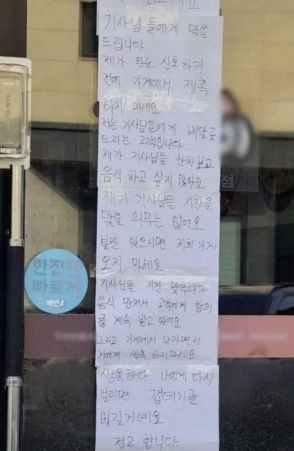 기사님 들에게 말씀
드립니다
제가 완료 신호 하기
전에 가게에서 재촉
하지 마세요
저는 기사님들에게 배달로
드리는 고객입니다
제가 기사님들 눈치 보고
음식 하고 싶지 않아요
제가 기사님들 시간을
맞출 의무는 없어요
불만 있으시면 저희 가게
오지 마세요
기사님들 시간 맞추다가
음식 망쳐서 고객에게 항의
를 계속 받고 있어요
그리고 가게에서 나가면서
저에게 쌍욕 하지마세요
쌍욕하다 나에게 다시
걸리면 껍데기를
벗길거예요
경고 합니다
한집
빠르게
배민1
점